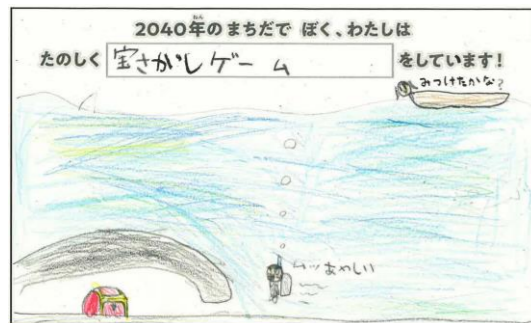 2040年のまちだで ぼく、わたしは
ねん
たのしく 宝さがしゲーム をしています!
みつけたかな?
ムッあやしい